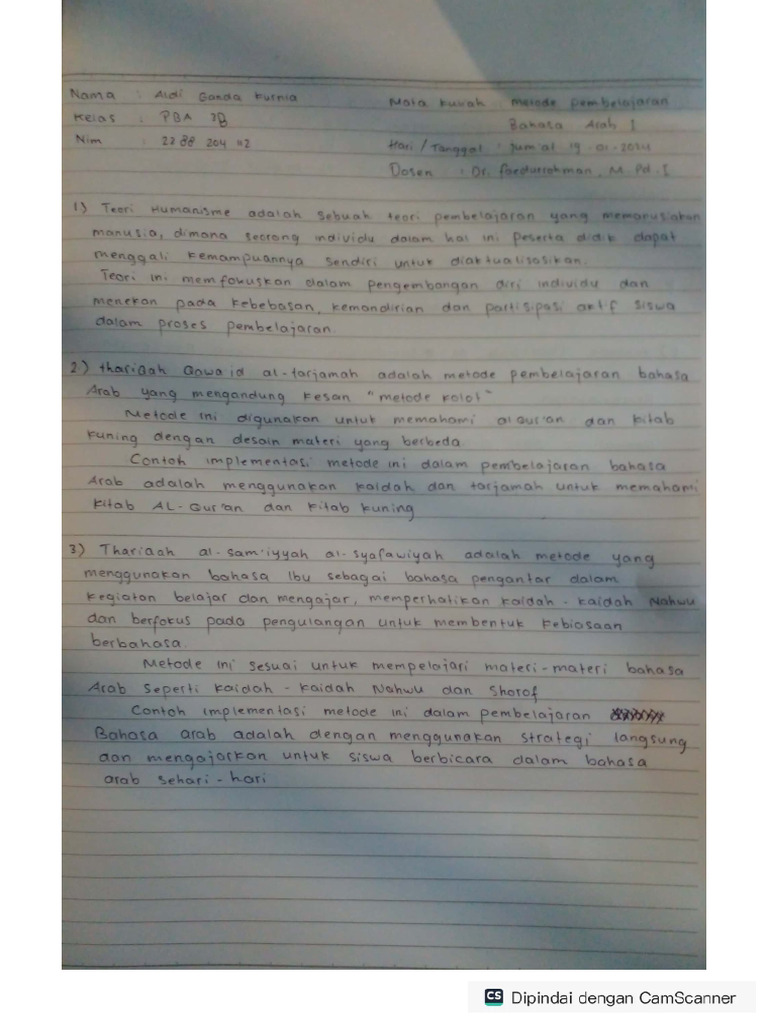 Nama : Aldi Ganda Kurnia
Mata Kuliah : metode pembelajaran
Kelas : PBA 3B
Bahasa Arab I
Nim : 22 88 204 112
Hari / Tanggal : Jum'at 19 - 01 - 2024
Dosen : Dr. Faedurrohman, M. Pd. I
1) Teori Humanisme adalah sebuah teori pembelajaran yang memanusiakan
manusia, dimana seorang individu dalam hal ini peserta didik dapat
menggali kemampuannya sendiri untuk diaktualisasikan.
Teori ini memfokuskan dalam pengembangan diri individu dan
menekan pada kebebasan, kemandirian dan partisipasi aktif siswa
dalam proses pembelajaran.
2) thariqah Qawaid al-tarjamah adalah metode pembelajaran bahasa
Arab yang mengandung kesan "metode kolot"
Metode ini digunakan untuk memahami al Qur'an dan kitab
kuning dengan desain materi yang berbeda.
Contoh implementasi metode ini dalam pembelajaran bahasa
Arab adalah menggunakan kaidah dan tarjamah untuk memahami
kitab AL-Qur'an dan kitab kuning
3) Thariqah al-sam'iyyah al-syafawiyah adalah metode yang
menggunakan bahasa Ibu sebagai bahasa pengantar dalam
kegiatan belajar dan mengajar, memperhatikan kaidah-kaidah Nahwu
dan berfokus pada pengulangan untuk membentuk kebiasaan
berbahasa.
Metode ini sesuai untuk mempelajari materi-materi bahasa
Arab seperti kaidah-kaidah Nahwu dan Shorof
Contoh implementasi metode ini dalam pembelajaran
Bahasa arab adalah dengan menggunakan strategi langsung
dan mengajarkan untuk siswa berbicara dalam bahasa
arab sehari-hari
CS Dipindai dengan CamScanner